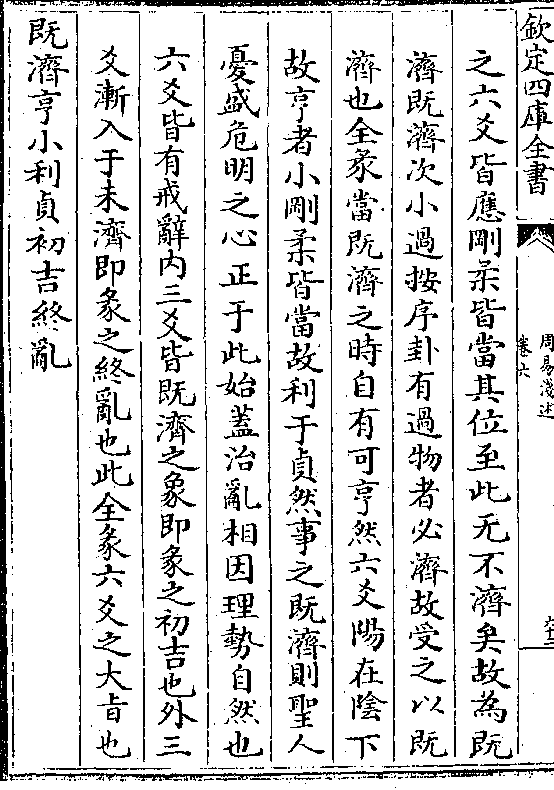 欽定四庫全書
周易淺述
卷六
之六爻皆應剛柔皆當其位至此无不濟矣故為既
濟既濟次小過按序卦有過物者必濟故受之以既
濟也全彖當既濟之時自有可亨然六爻陽在陰下
故亨者小剛柔皆當故利于貞然事之既濟則聖人
憂盛危明之心正于此始蓋治亂相因理勢自然也
六爻皆有戒辭内三爻皆既濟之象即彖之初吉也外三
爻漸入于未濟即彖之終亂也此全彖六爻之大旨也
既濟亨小利貞初吉終亂